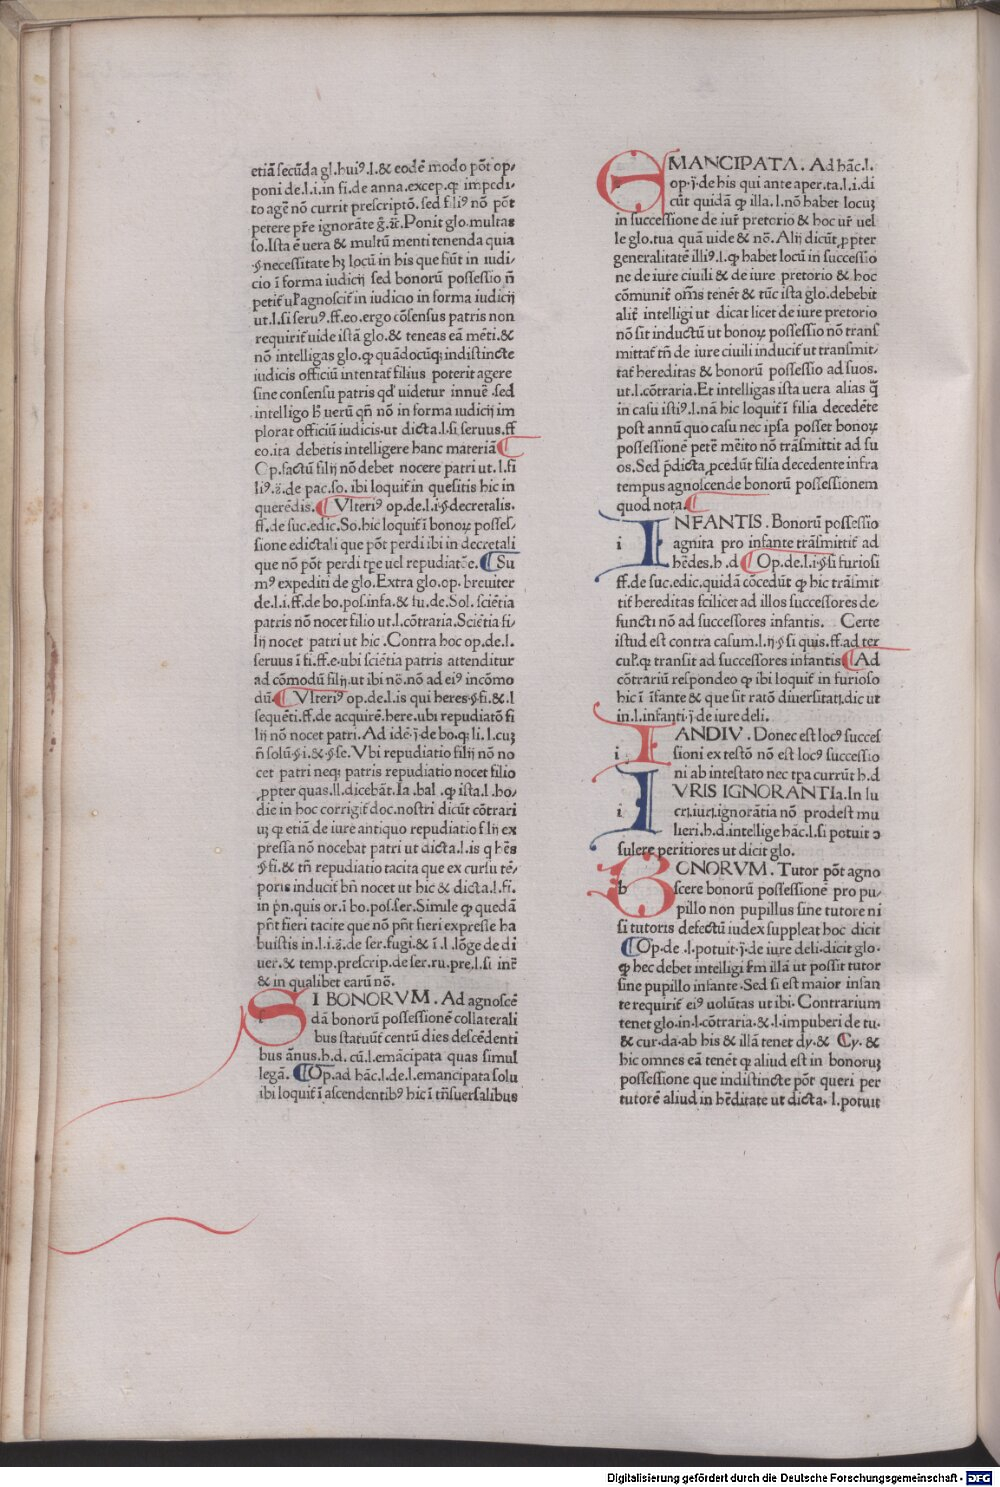 etiā secūda gl.huiꝰ.l.& eodē modo pōt op/
poni de.l.i.in fi.de anna.excep.ꝙ impedi/
to agē nō currit prescriptō.sed filiꝰ nō pōt
petere pr̄e ignorāte ḡ.ꝛc̄.Ponit glo.multas
so.Ista ē uera & multū menti tenenda quia
.§.necessitate hꝫ locū in his que fiūt in iudi/
cio i forma iudicij sed bonorū possessio n̄
petit̄ ul̓ agnoscit̄ in iudicio in forma iudicij
ut.l.si seruꝰ.ff.eo.ergo cōsensus patris non
requirit̄ uide istā glo.& teneas eā mēti.&
nō intelligas glo.ꝙ quādocūqꝫ indistincte
iudicis officiū intentat̄ filius poterit agere
sine consensu patris qd̓ uidetur innuē .sed
intelligo h̓ uerū qn̄ nō in forma iudicij im
plorat officiū iudicis.ut dicta.l.si seruus.ff
eo.ita debetis intelligere hanc materiā
Op.factū filij nō debet nocere patri ut.l.si
liꝰ.ā.de pac.so.ibi loquit̄ in quesitis hic in
querēdis. Vlteriꝰ op.de.l.i.§.decretalis.
ff.de suc.edic.So.hic loquit̄ i bonoꝝ posses/
sione edictali que pōt perdi ibi in decretali
que nō pōt perdi tp̄e uel repudiatōe. Su
mꝰ expediti de glo.Extra glo.op.breuiter
de.l.i.ff.de bo.pos.infa.& fu.de.Sol.sciētia
patris nō nocet filio ut.l.cōtraria.Sciētia fi/
lij nocet patri ut hic .Contra hoc op.de.l.
seruus i fi.ff.e.ubi sciētia patris attenditur
ad cōmodū filij.ut ibi nō.nō ad eiꝰ incōmo
dū. Vlteriꝰ op.de.l.is qui heres.§.fi.&.l
sequēti.ff.de acquirē.here.ubi repudiatō fi
lij nō nocet patri.Ad idē.j.de bo.q̄.li.l.cuꝫ
n̄ solū.§.i.&.§.se.Vbi repudiatio filij nō no
cet patri neqꝫ patris repudiatio nocet filio
ꝓpter quas.ll.dicebāt.Ia.bal .ꝙ ista.l.ho/
die in hoc corrigit̄ doc.nostri dicūt cōtrari
uꝫ ꝙ etiā de iure antiquo repudiatio filij ex
pressa nō nocebat patri ut dicta.l.is q̄ hēs
.§.fi.& tn̄ repudiatio tacita que ex cursu tē/
poris inducit̄ bn̄ nocet ut hic & dicta.l.fi.
in p̄n.quis or.i bo.pos.ser.Simile ꝙ quedā
pn̄t fieri tacite que nō pn̄t fieri expresse ha
buistis in.l.i.ā.de ser.fugi.& i .l .lōge de di
uer.& temp.prescrip.de ser.ru.pre.l.si inē
& in qualibet earū nō.
SI BONORVM . Ad agnoscē
dā bonorū possessionē collaterali
bus statuūt̄ centū dies descēdenti
bus ānus.h.d. cū.l.emācipata quas simul
legā. Op.ad hāc.l.de.l.emancipata solu
ibi loquit̄ i ascendentibꝰ hic i tn̄suersalibus
EMANCIPATA . Ad hāc.l.
op.j.de his qui ante aper.ta.l.i.di
cūt quidā ꝙ illa.l.nō habet locuꝫ
in successione de iur̄ pretorio & hoc ur̄ uel
le glo.tua quā uide & nō. Alij dicūt ꝓpter
generalitatē illiꝰ.l.ꝙ habet locū in successio
ne de iure ciuili & de iure pretorio & hoc
cōmunit̄ om̄s tenēt & tūc ista glo.debebit
alit̄ intelligi ut dicat licet de iure pretorio
nō sit inductū ut bonoꝝ possessio nō trans
mittat̄ tn̄ de iure ciuili inducit̄ ut transmit/
tat̄ hereditas & bonorū possessio ad suos.
ut.l.cōtraria.Et intelligas ista uera alias q̄
in casu istiꝰ.l.nā hic loquit̄ i filia decedēte
post annū quo casu nec ipsa posset bonoꝝ
possessionē petē mēito nō trāsmittit ad su
os.Sed p̄dicta ꝓcedūt filia decedente infra
tempus agnoscende bonorū possessionem
quod nota.
INFANTIS . Bonorū possessio
i agnita pro infante trāsmittit̄ ad
hēdes.h .d Op.de.l.i.§.si furiosi
ff.de suc.edic.quidā cōcedūt ꝙ hic trāsmit
tit̄ hereditas scilicet ad illos successores de/
functi nō ad successores infantis. Certe
istud est contra casum.l.ij.§.si quis.ff.ad ter
cul̓.ꝙ transit ad successores infantis Ad
cōtrariū respondeo ꝙ ibi loquit̄ in furioso
hic i īfante & que sit ratō diuersitati.dic ut
in.l.infanti.j.de iure deli.
TANDIV . Donec est locꝰ succes
i sioni ex testō nō est locꝰ successio
ni ab intestato nec tpa currūt h.d
IVRIS IGNORANTIa.In lu
i cri.iuri.ignorātia nō prodest mu
lieri.h.d.intellige hāc.l.si potuit ↄ
sulere peritiores ut dicit glo.
BONORVM. Tutor pōt agno
b scere bonorū possessionē pro pu/
pillo non pupillus sine tutore ni
si tutoris defectū iudex suppleat hoc dicit
Op.de .l.potuit.j.de iure deli.dicit glo.
ꝙ hec debet intelligi fm illā ut possit tutor
sine pupillo infante.Sed si est maior infan
te requirit̄ eiꝰ uolūtas ut ibi. Contrarium
tenet glo.in.l.cōtraria.&.l.impuberi de tu.
& cur.da.ab his & illā tenet dy.& Cy. &
hic omnes eā tenēt ꝙ aliud est in bonoruꝫ
possessione que indistincte pōt queri per
tutorē aliud in hēditate ut dicta. l.potuit
Digitalisierung gefördert durch die Deutsche Forschungsgemeinschaft - DFG